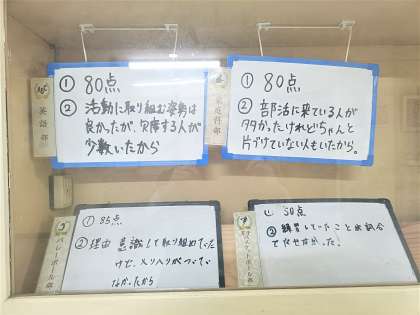 ABC
英語部
① 80点
② 活動に取り組む姿勢は
良かったが、欠席する人が
少数いたから
家庭科部
① 80点
② 部活に来ている人が
多かったけれどちゃんと
片づけていない人もいたから。
バレーボール部
① 85点
② 理由 意識して取り組めていた
けど、メリハリがついてい
なかったから
① 80点
② 練習していたことを試合
でだせなかった。